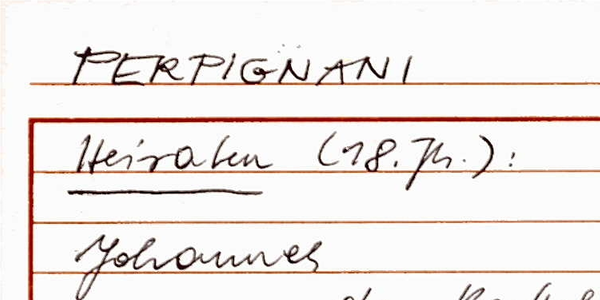 PERPIGNANI
Heiraten (18. Jh.):
Johannes